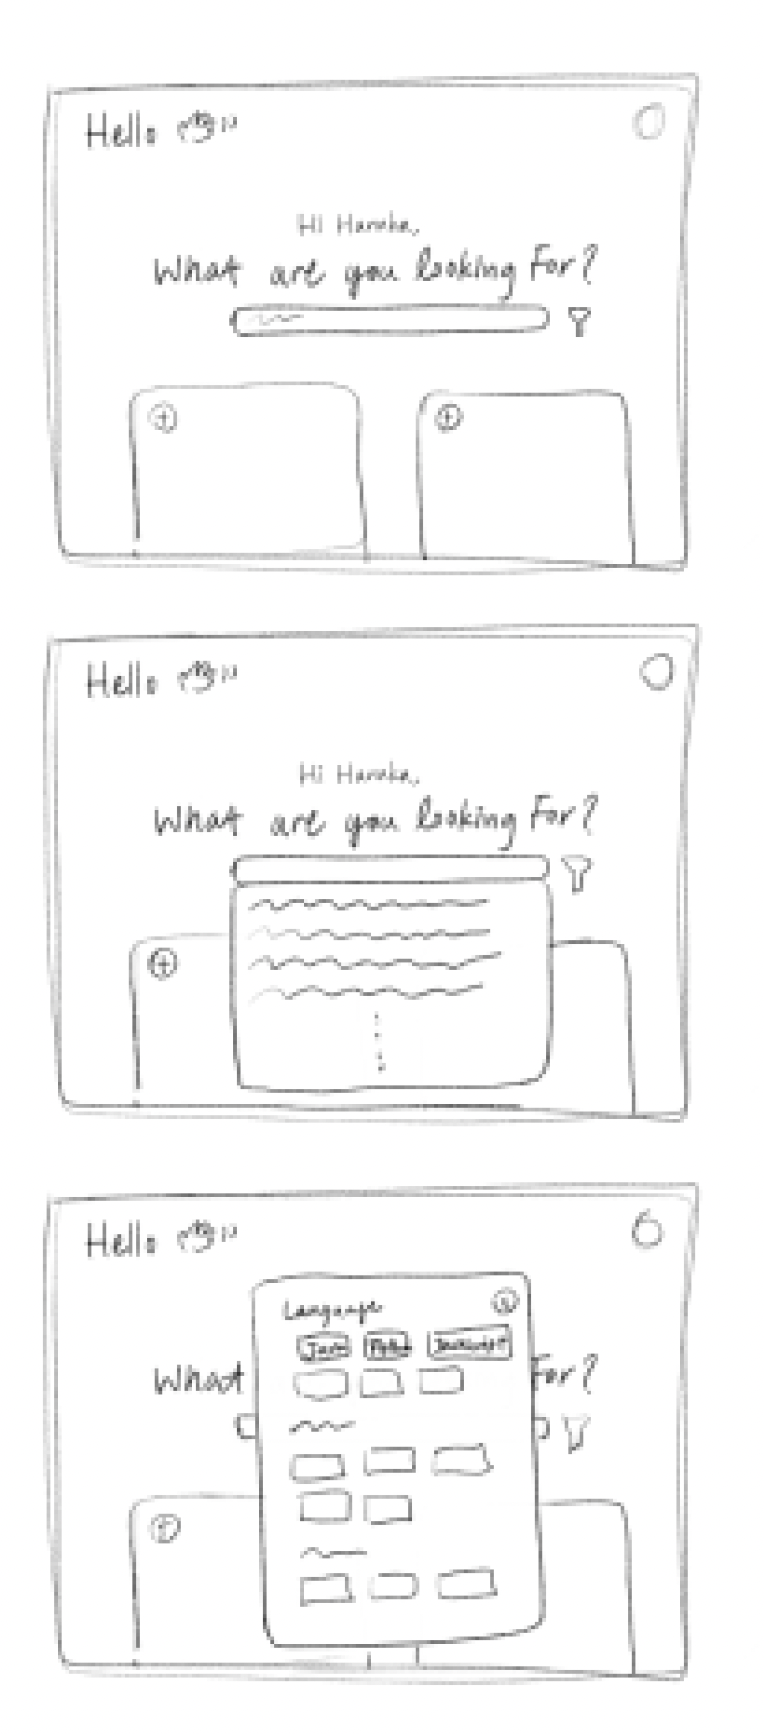 Hello
Hi Haruka,
What are you looking for?
Hello
Hi Haruka,
What are you looking for?
Hello
Language
Java Javascript
What For?